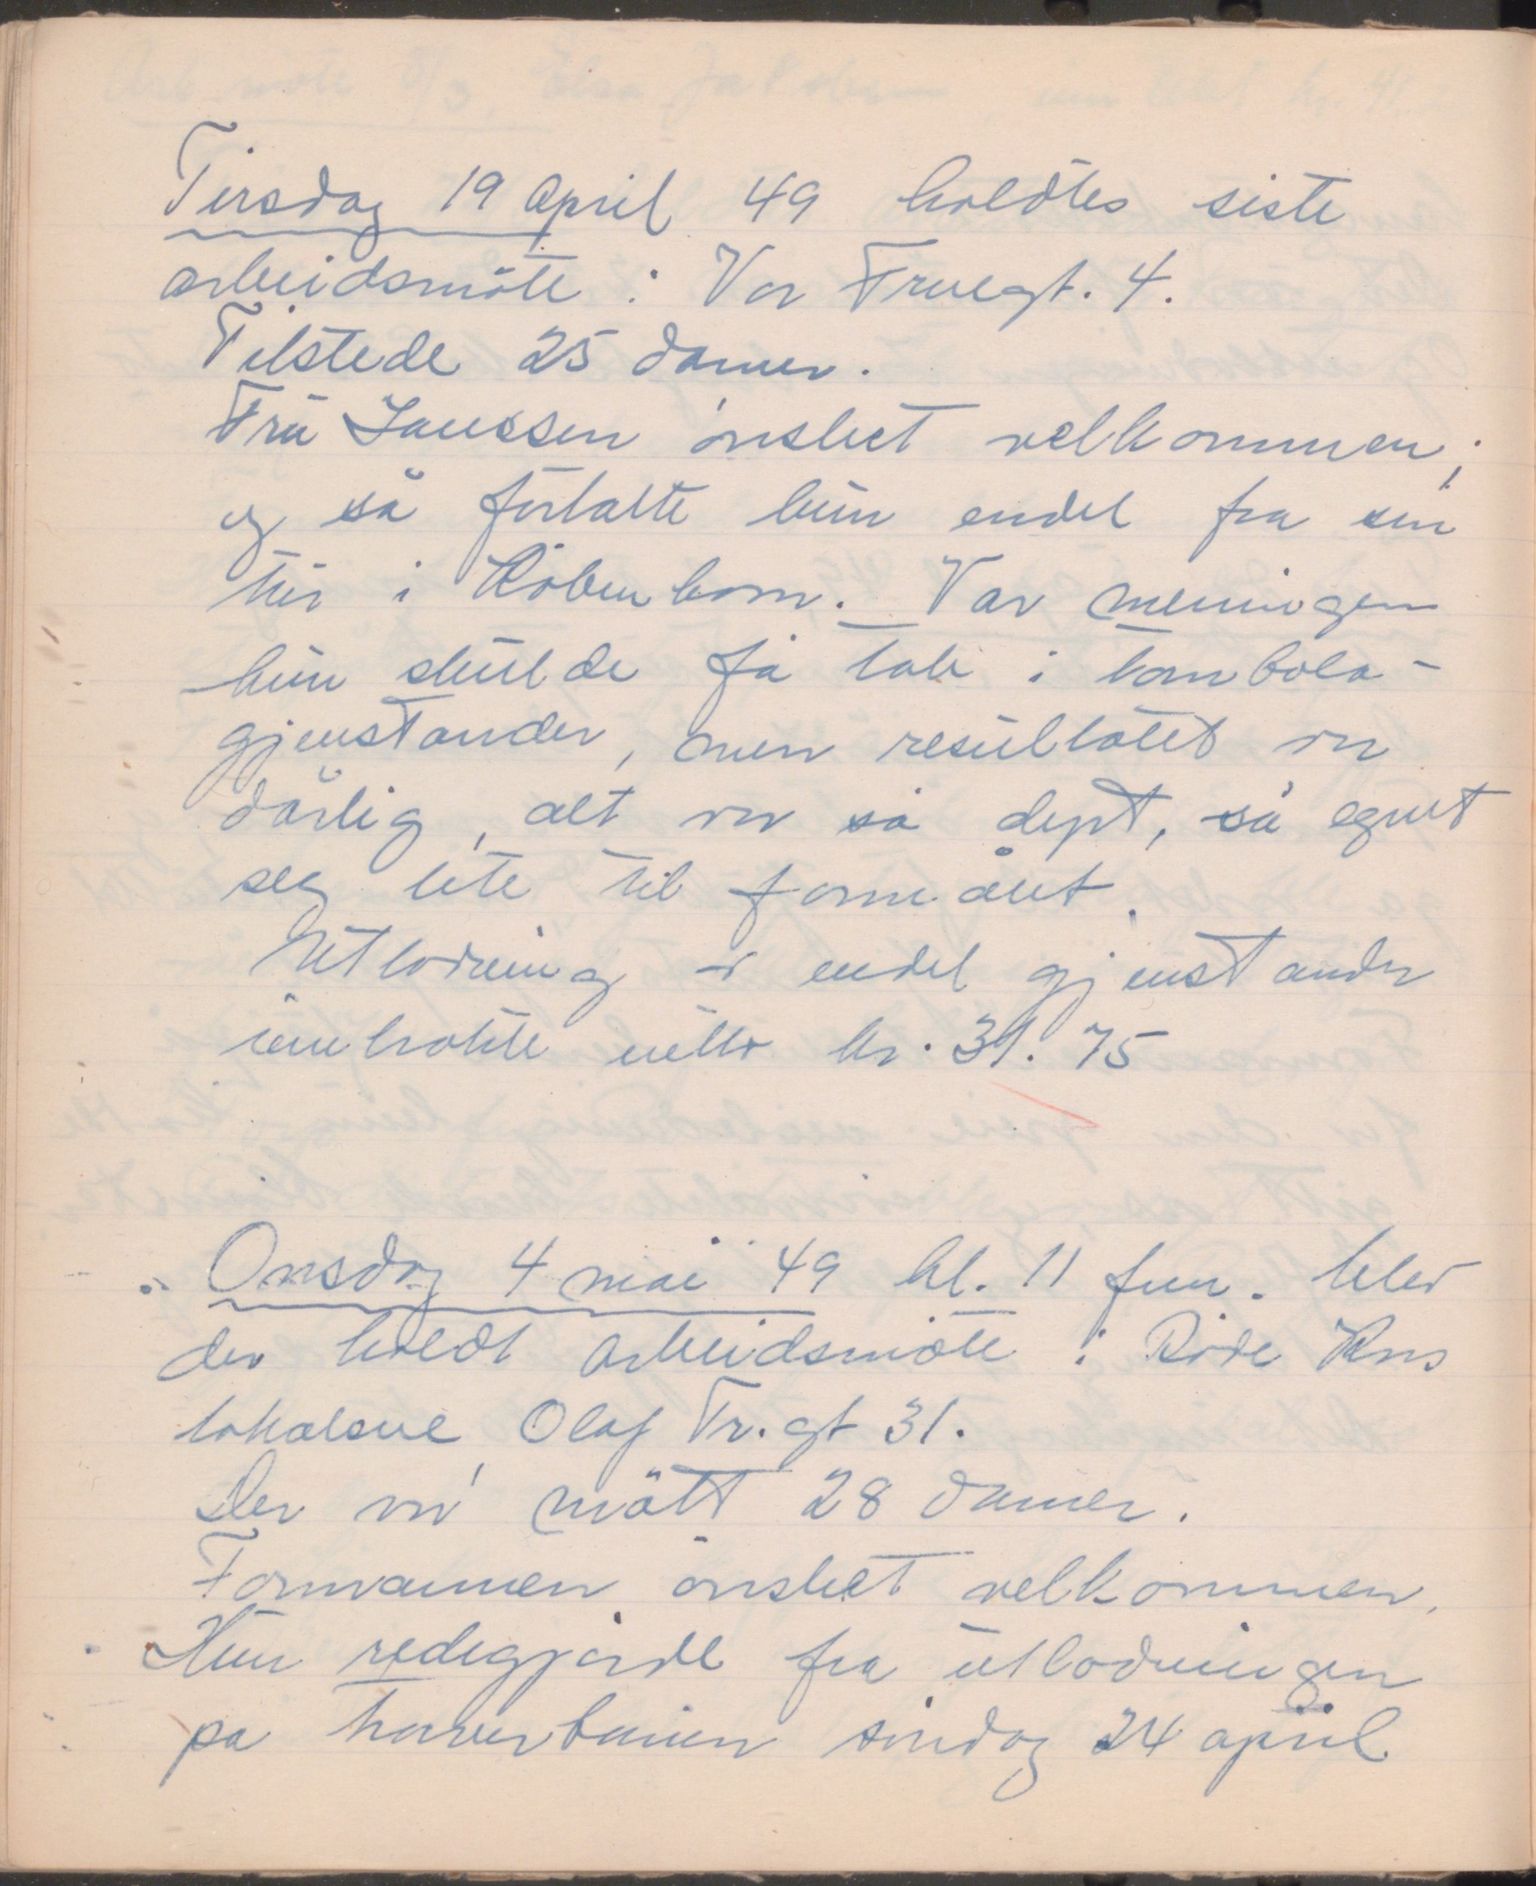 Tirsdag 19 april 49 holdtes siste
arbeidsmöte i Vor Fruegt. 4.
Tilstede 25 damer.
Frü Janssen ønsket velkommen,
og så fortalte hun endel fra sin
tur i Köbenhavn. Var meningen
hun skulde få tak i tombola-
gjenstander, men resultatet var
dårlig, alt var så dyrt, så egnet
seg lite til formålet.
Utlodning av endel gjenstander
innbrakte netto kr. 31.75
Onsdag 4 mai 49 kl. 11 fm. blev
der holdt arbeidsmöte i Röde Kors
lokalene, Olaf Tr.gt 31.
Der var mött 28 damer.
Formannen ønsket velkommen.
Hun redegjorde fra utlodningen
på travbanen søndag 24 april